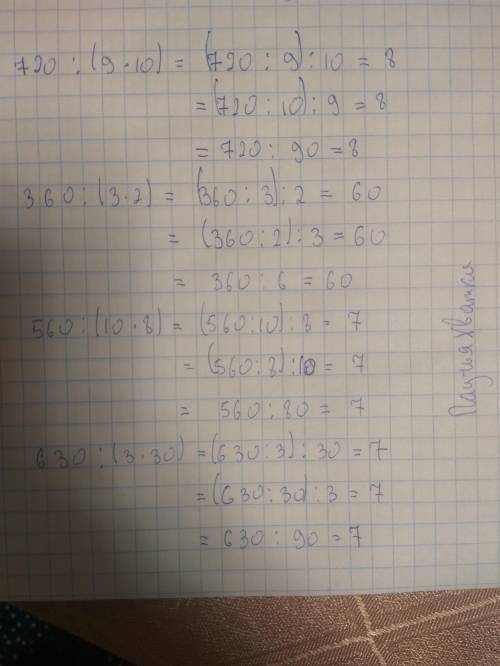 720 : (9 · 10) = (720 : 9) : 10 = 8
= (720 : 10) : 9 = 8
= 720 : 90 = 8
360 : (3 · 2) = (360 : 3) : 2 = 60
= (360 : 2) : 3 = 60
= 360 : 6 = 60
560 : (10 · 8) = (560 : 10) : 8 = 7
= (560 : 8) : 10 = 7
= 560 : 80 = 7
630 : (3 · 30) = (630 : 3) : 30 = 7
= (630 : 30) : 3 = 7
= 630 : 90 = 7
ПаучьяХватка